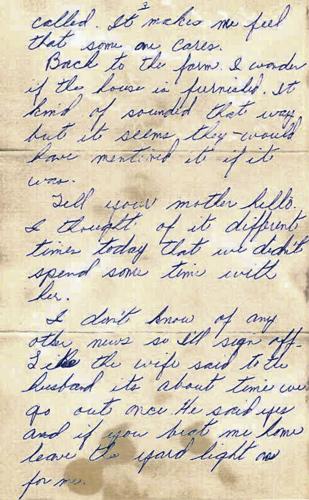 3
called. It makes me feel
that some one cares.
Back to the farm. I wonder
if the house is furnished. It
kind of sounded that way
but it seems they would
have mentioned it if it
was.
Tell your mother hello.
I thought of it different
times today that we didn't
spend some time with
her.
I don't know of any
other news so I'll sign off.
Like the wife said to the
husband its about time we
go out once. He said yes
and if you beat me home
leave the yard light on
for me.